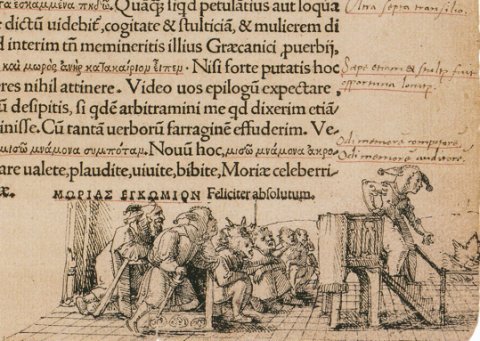 τα ἐσκαμμένα πηδῶ. Quæq; siqd petulatius aut loqua
dictū uidebit́, cogitate & stulticiā, & mulierem di
d interim tn̄ memineritis illius Græcanici, puerbij,
καὶ μωρὸς ἀνὴρ κατακαίριον εἶπεν. Nisi forte putatis hoc
eres nihil attinere. Video uos epilogū expectare
ū desipitis, si qdē arbitramini me qd dixerim etiā
inisse. Cū tantā uerborū farraginē effuderim. Ve
μισῶ μνάμονα συμπόταν. Nouū hoc, μισῶ μνάμονα ἀκρο
are ualete, plaudite, uiuite, bibite, Moriæ celeberri
x. ΜΩΡΙΑΣ ΕΓΚΩΜΙΟΝ Feliciter absolutum.
Ultra septa transilio.
Sæpe etiam & stultus fuit
oportuna
Odi memorē compotorē
Odi memorē auditorē